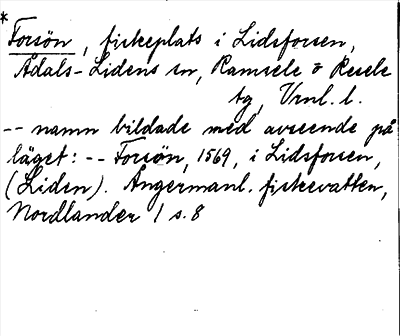 *
Forsön, fiskeplats i Lidsforsen,
Ådals-Lidens sn, Ramsele & Resele
tg, Vrnl. l.
-- namn bildade med avseende på
läget: -- Forsön, 1569, i Lidsforsen,
(Liden). Ångermanl. fiskevatten,
Nordlander 1 s. 8